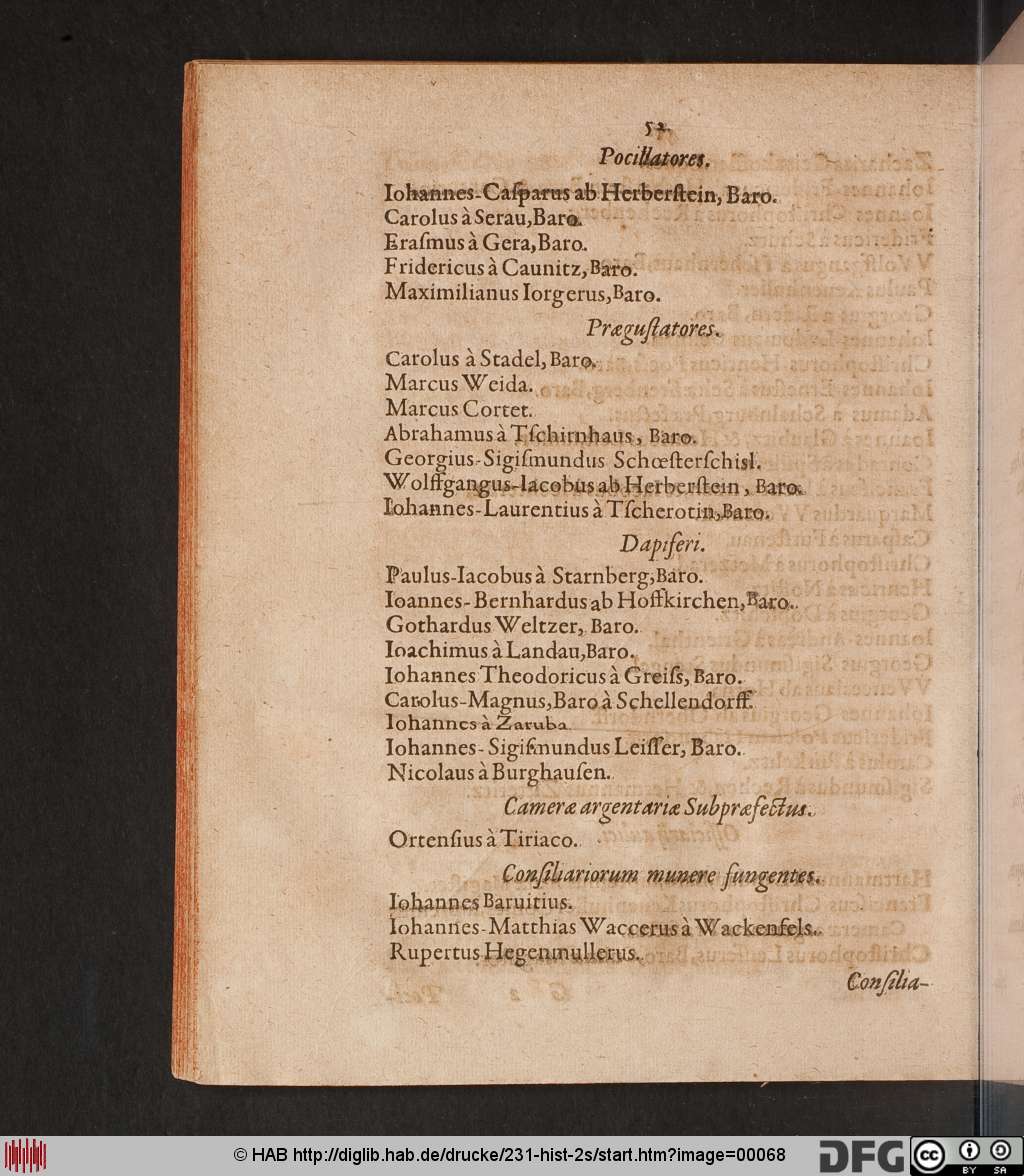 52.
Pocillatores.
Iohannes-Caſparus ab Herberſtein, Baro.
Carolus à Serau, Baro.
Eraſmus à Gera, Baro.
Fridericus à Caunitz, Baro.
Maximilianus Iorgerus, Baro.
Præguſtatores.
Carolus à Stadel, Baro.
Marcus Weida.
Marcus Cortet.
Abrahamus à Tſchirnhaus, Baro.
Georgius-Sigiſmundus Schœſterſchisl.
Wolffgangus-Iacobus ab Herberſtein, Baro.
Iohannes-Laurentius à Tſcherotin, Baro.
Dapiferi.
Paulus-Iacobus à Starnberg, Baro.
Ioannes-Bernhardus ab Hoffkirchen, Baro.
Gothardus Weltzer, Baro.
Ioachimus à Landau, Baro.
Iohannes Theodoricus à Greiſs, Baro.
Carolus-Magnus, Baro à Schellendorff.
Iohannes à Zaruba.
Iohannes-Sigiſmundus Leiſſer, Baro.
Nicolaus à Burghauſen.
Cameræ argentariæ Subpræfectus.
Ortenſius à Tiriaco.
Conſiliariorum munere fungentes.
Iohannes Baruitius.
Iohannes-Matthias Waccerus à Wackenfels.
Rupertus Hegenmullerus.
Conſilia-
© HAB http://diglib.hab.de/drucke/231-hist-2s/start.htm?image=00068
DFG
cc
BY SA